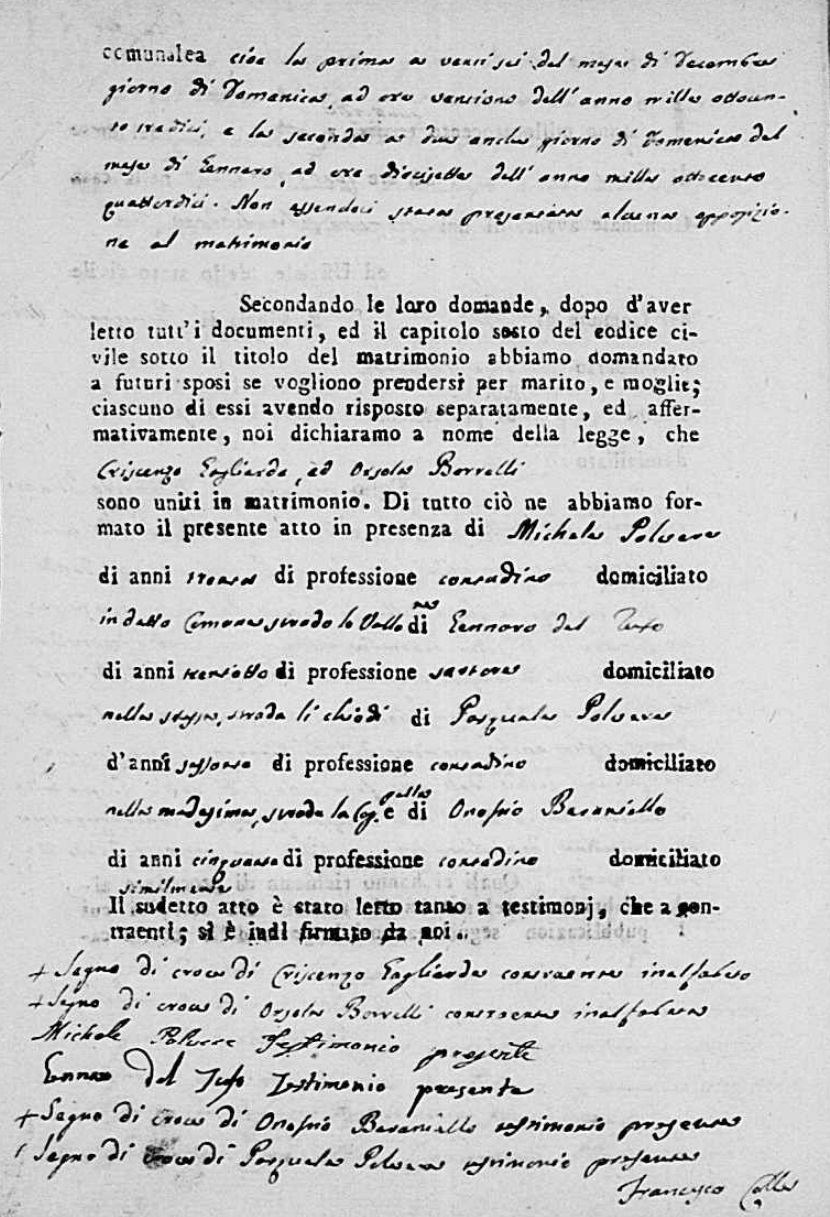 comunalea cioe la prima a venti sei del mese di Decembre
giorno di Domenica, ad ore ventuno dell'anno mille ottocen-
to tredici, e la seconda a due anche giorno di Domenica del
mese di Gennaro, ad ore diecisette dell'anno mille ottocento
quattordici. Non essendoci stata presentata alcuna opposizio-
ne al matrimonio
Secondando le loro domande, dopo d'aver
letto tutt'i documenti, ed il capitolo sesto del codice ci-
vile sotto il titolo del matrimonio abbiamo domandato
a futuri sposi se vogliono prendersi per marito, e moglie;
ciascuno di essi avendo risposto separatamente, ed affer-
mativamente, noi dichiaramo a nome della legge, che
Criscenzo Gagliarde, ed Orsola Borrelli
sono uniti in matrimonio. Di tutto ciò ne abbiamo for-
mato il presente atto in presenza di Michele Polvere
di anni trenta di professione contadino domiciliato
in detto Comune, strada le Vallo di Gennaro del Tufo
di anni trentotto di professione sartore domiciliato
nella stessa, strada li chiodi di Pasquale Polvere
d'anni sessanta di professione contadino domiciliato
nella medesima, strada la di Onofrio Basaniello
di anni cinquanta di professione contadino domiciliato
similmente
Il sudetto atto è stato letto tanto a testimonj, che a con-
traenti; si è indi firmato da noi.
+ Segno di croce di Criscenzo Gagliarde contraente inalfabeto
+ Segno di croce di Orsola Borrelli contraente inalfabeta
Michele Polvere Testimonio presente
Gennaro del Tufo Testimonio presente
+ Segno di croce di Onofrio Basaniello testimonio presente
+ Segno di croce di Pasquale Polvere testimonio presente
Francesco